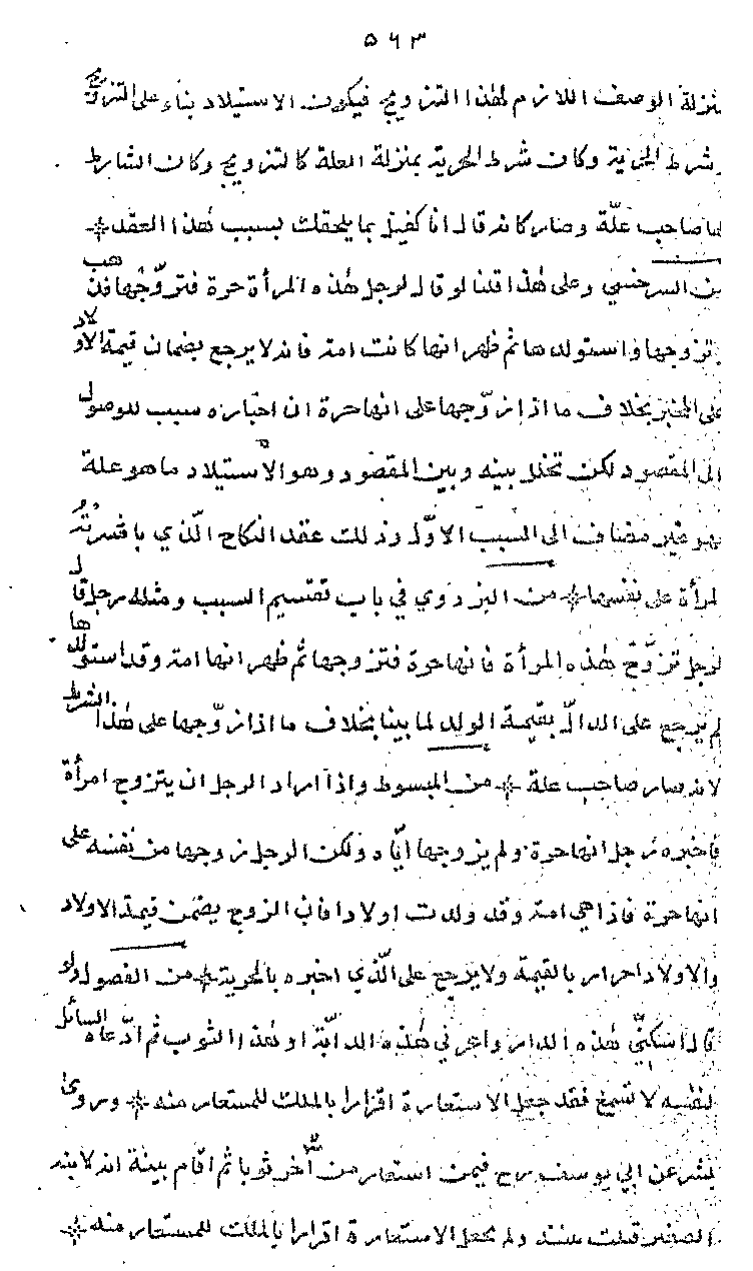 ٥٦٣
بمنزلة الوصف اللازم لهذا التزويج فيكون الاستيلاد بناء على التزويج
وشرط الحرية وكان شرط الحرية بمنزلة العلة كالتزويج وكان الشارط
لها صاحب علّة وصار كانه قال انا كفيل بما يلحقك بسبب هذا العقد
من السرخسي وعلى هذا قلنا لو قال لرجل هذه المرأة حرة فتزوّجها فذهب
وتزوجها واستولدها ثم ظهر انها كانت امة فانه لا يرجع بضمان قيمة الاولاد
على المخبر بخلاف ما اذا زوّجها على انها حرة ان اخباره سبب للوصول
الى المقصود لكن تخلل بينه وبين المقصود وهو الاستيلاد ما هو علة
وهو غير مضاف الى السبب الاوّل وذلك عقد النكاح الّذي باشرته
المرأة على نفسها من البزدوي في باب تقسيم السبب ومثله رجل قال
لرجل تزوّج هذه المرأة فانها حرة فتزوجها ثم ظهر انها امة وقد استولدها
لم يرجع على الدالّ بقيمة الولد لما بينا بخلاف ما اذا زوّجها على هذا الشرط
لانه صار صاحب علة من المبسوط واذا اراد الرجل ان يتزوج امرأة
فاخبره رجل انها حرة ولم يزوجها ايّاه ولكن الرجل زوجها من نفسه على
انها حرة فاذا هي امة وقد ولدت اولادا فان الزوج يضمن قيمة الاولاد
والاولاد احرار بالقيمة ولا يرجع على الّذي اخبره بالحرية من الفصول ولو
قال اسكنّي هذه الدار واعرني هذه الدابّة او هذا الثوب ثم ادّعاه السائل
لنفسه لا تسمع فقد جعل الاستعارة اقرارا بالملك للمستعار منه وروى
بشر عن ابي يوسف رح فيمن استعار من آخر ثوبا ثم اقام بينة انه لابنه
الصغير قبلت بينته ولم يجعل الاستعارة اقرارا بالملك للمستعار منه